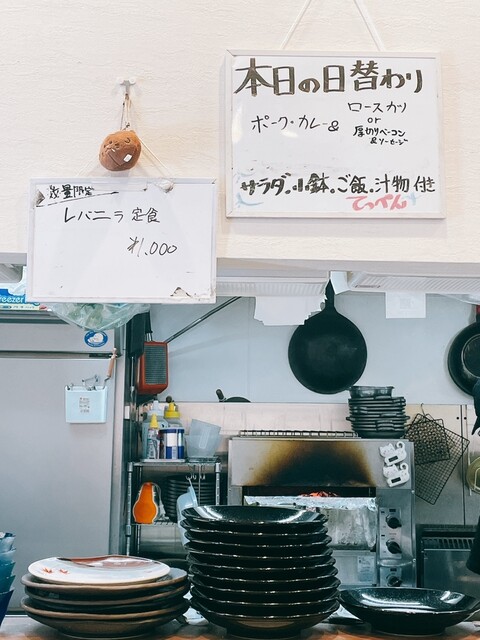 本日の日替わり
ポーク・カレー&
ロースカツ
or
厚切りベーコン
&ソーセージ
サラダ。小鉢。ご飯。汁物 付き
てっぺん
数量限定
レバニラ 定食
¥1,000
freezer